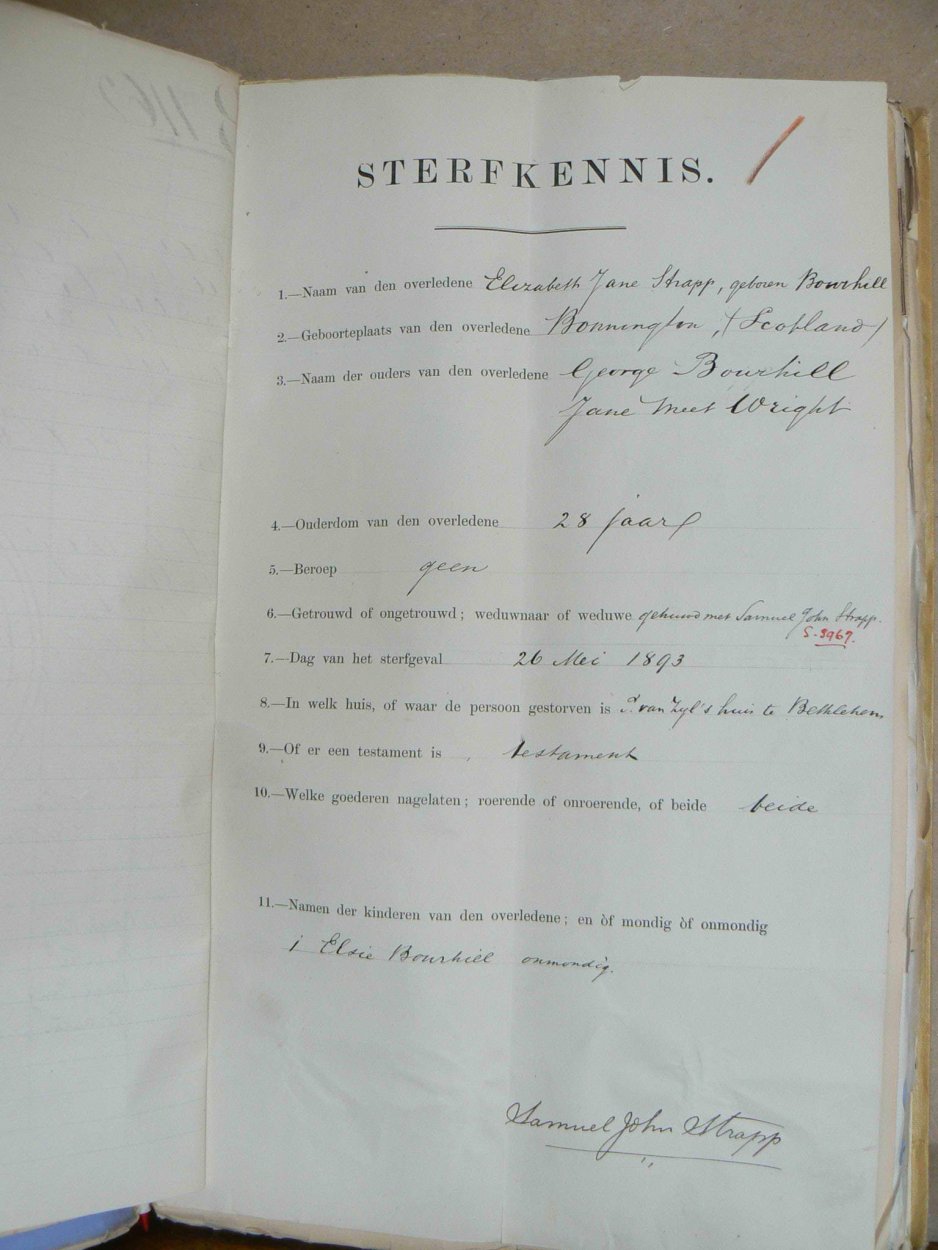 STERFKENNIS.
1.—Naam van den overledene Elizabeth Jane Strapp, geboren Bourhill
2.—Geboorteplaats van den overledene Bonnington, (Scotland)
3.—Naam der ouders van den overledene George Bourhill
Jane Wright
4.—Ouderdom van den overledene 28 jaar
5.—Beroep geen
6.—Getrouwd of ongetrouwd; weduwnaar of weduwe gehuwd met Samuel John Strapp.
7.—Dag van het sterfgeval 26 Mei 1893
8.—In welk huis, of waar de persoon gestorven is van Zyl's huis te Bethlehem
9.—Of er een testament is testament
10.—Welke goederen nagelaten; roerende of onroerende, of beide beide
11.—Namen der kinderen van den overledene; en òf mondig òf onmondig
1 Elsie Bourhill onmondig.
Samuel John Strapp